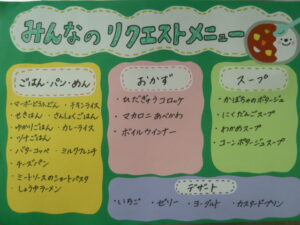 みんなのリクエストメニュー
ごはん・パン・めん
・マーボーどうふどん ・チキンライス
・せきはん ・さんしょくごはん
・ゆかりごはん ・カレーライス
・ツナごはん
・バターコッペ ・ミルクフレンチ
・チーズパン
・ミートソースのショートパスタ
・しょうゆラーメン
おかず
・ひだぎゅうコロッケ
・マカロニあべかわ
・ボイルウインナー
スープ
・かぼちゃのポタージュ
・にくだんごスープ
・わかめスープ
・コーンポタージュスープ
デザート
・いちご ・ゼリー ・ヨーグルト ・カスタードプリン